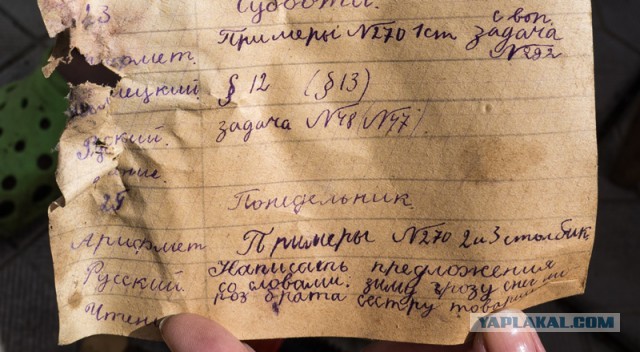 23 Суббота.
с воп.
Примеры №270 1 ст задача
№292
мецкий § 12 (§13)
ский. задача №48 (№47)
ние.
25 Понедельник.
Арифмет Примеры №270 2 и 3 столбик.
Русский. Написать предложения
со словами. зиму грозу снег
роз брата сестру товарищ
Чтен
YAPLAKAL.COM